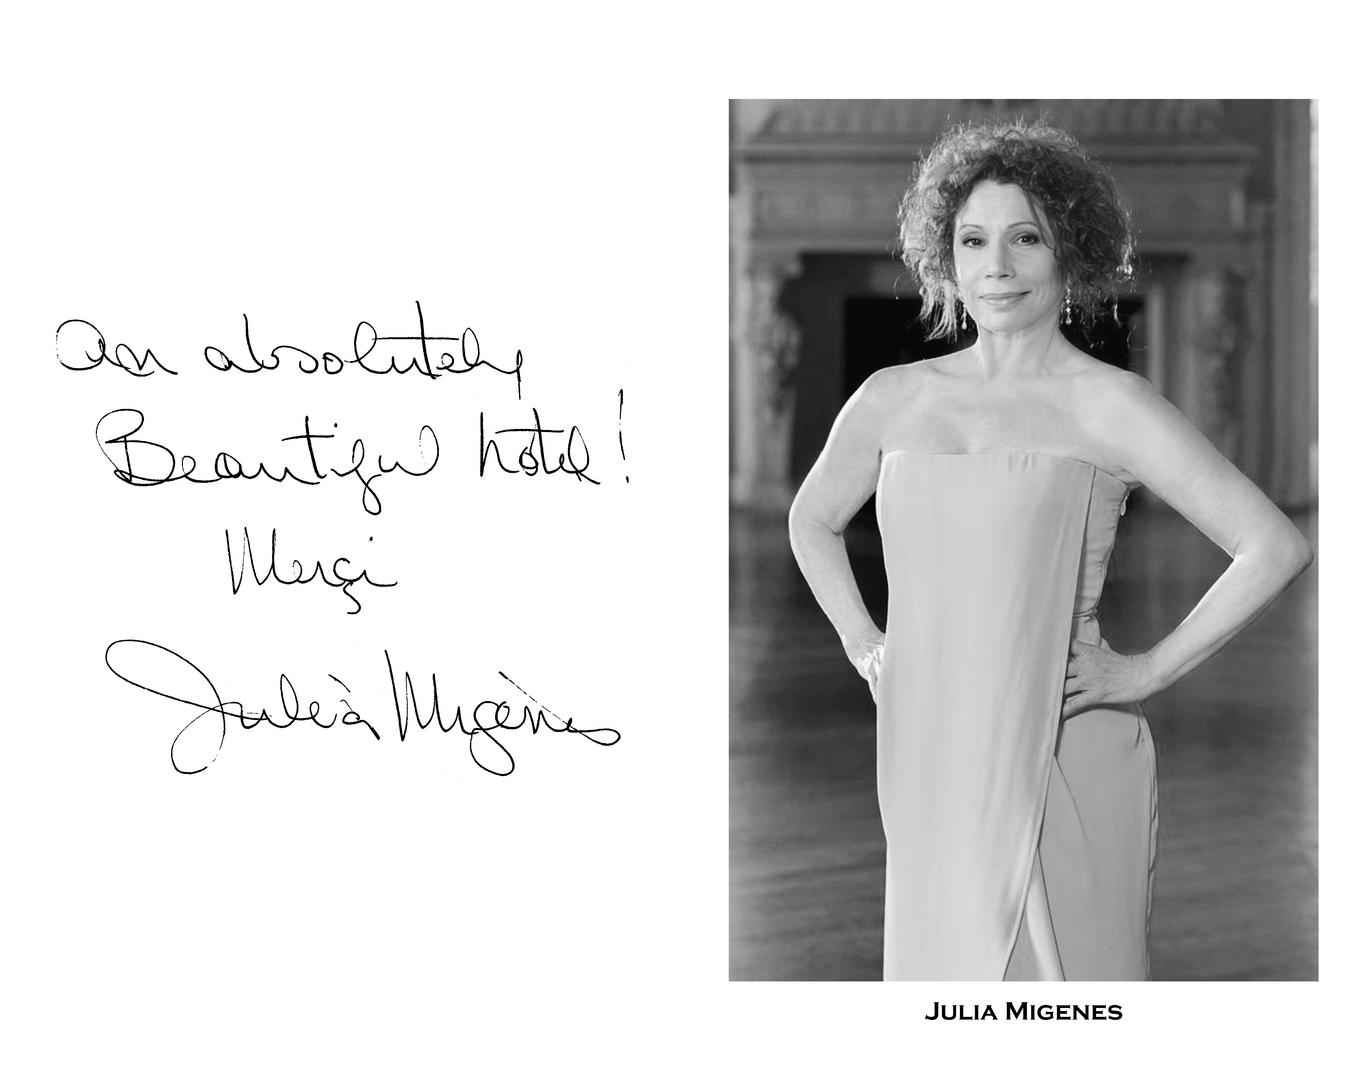 an absolutely
Beautiful hotel!
Merçi
Julia Migenes
JULIA MIGENES